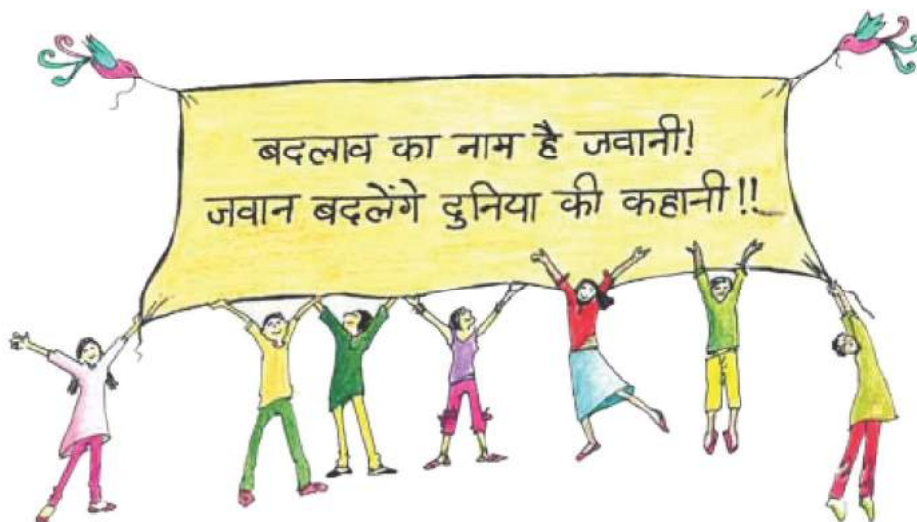 बदलाव का नाम है जवानी!
जवान बदलेंगे दुनिया की कहानी!!